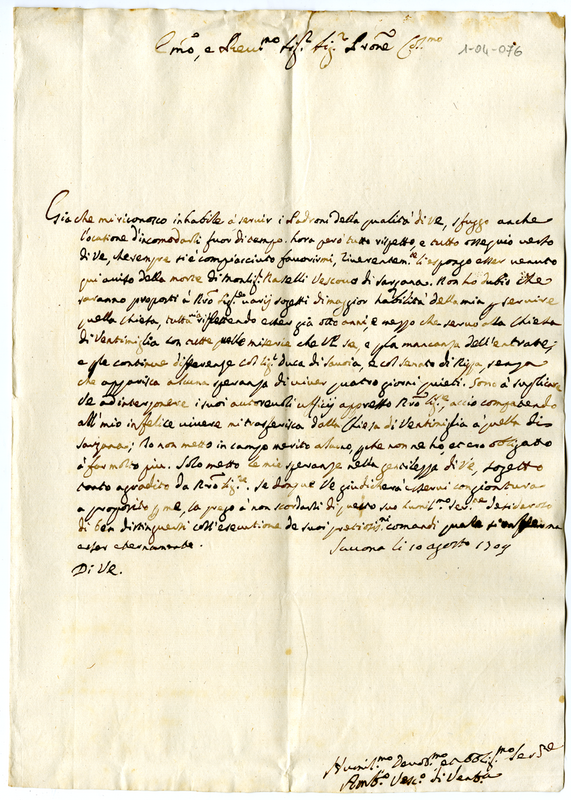 Em.o, e Rev.mo Sig.r Sig.r Pron.e Col.mo
1-04-076
Gia che mi riconosco inhabile à servir i Padroni della qualità di VE, sfuggo anche
l'occasione d'incomodarli fuor di tempo. hora però tutto rispetto, e tutto ossequio verso
di VE, che sempre si è compiacciuto favorirmi, riverentem.te li espongo esser venuto
qui aviso della morte di Monsig.r Naselli Vescovo di Sarzana. Non hò dubio che
saranno proposti à N.ro Sig.re varij sogetti di maggior habilità della mia p servire
quella Chiesa, tutta via riflettendo esser già otto anni e mezzo che servo alla Chiesa
di Ventimiglia con tutte quelle miserie che VE sa, e p la mancanza dell'entrate,
e p le continue differenze col Sig.r Duca di Savoia, e col Senato di Nizza, senza
che apparisca alcuna speranza di viver quatro giorni quieti. Sono à suplicare
VE ad interponere i suoi autorevoli ufficij appresso N.ro Sig.re, acciò compatendo
all'mio infelice vivere mi trasferisca dalla Chiesa di Ventimiglia à quella di
Sarzana; Io non metto in campo merito alcuno, p che non ne hò, et ero obligatto
à far molto piu. Solo metto le mie speranze nella gentilezza di VE, sogetto
tanto agradito da N.ro Sig.re. Se donque VE giudicherà esservi congiontura
a proposito p me, la prego à non scordarsi di questo suo humil.mo ser.re desideroso
di ben distinguersi coll'esecutione de suoi pretiosis.mi comandi quale si
esser eternamente.
Savona li 10 agosto 1709
Di VE.
Humil.mo Devot.mo et obblig.mo Ser.re
Amb.o Vesc.o di Vent.a